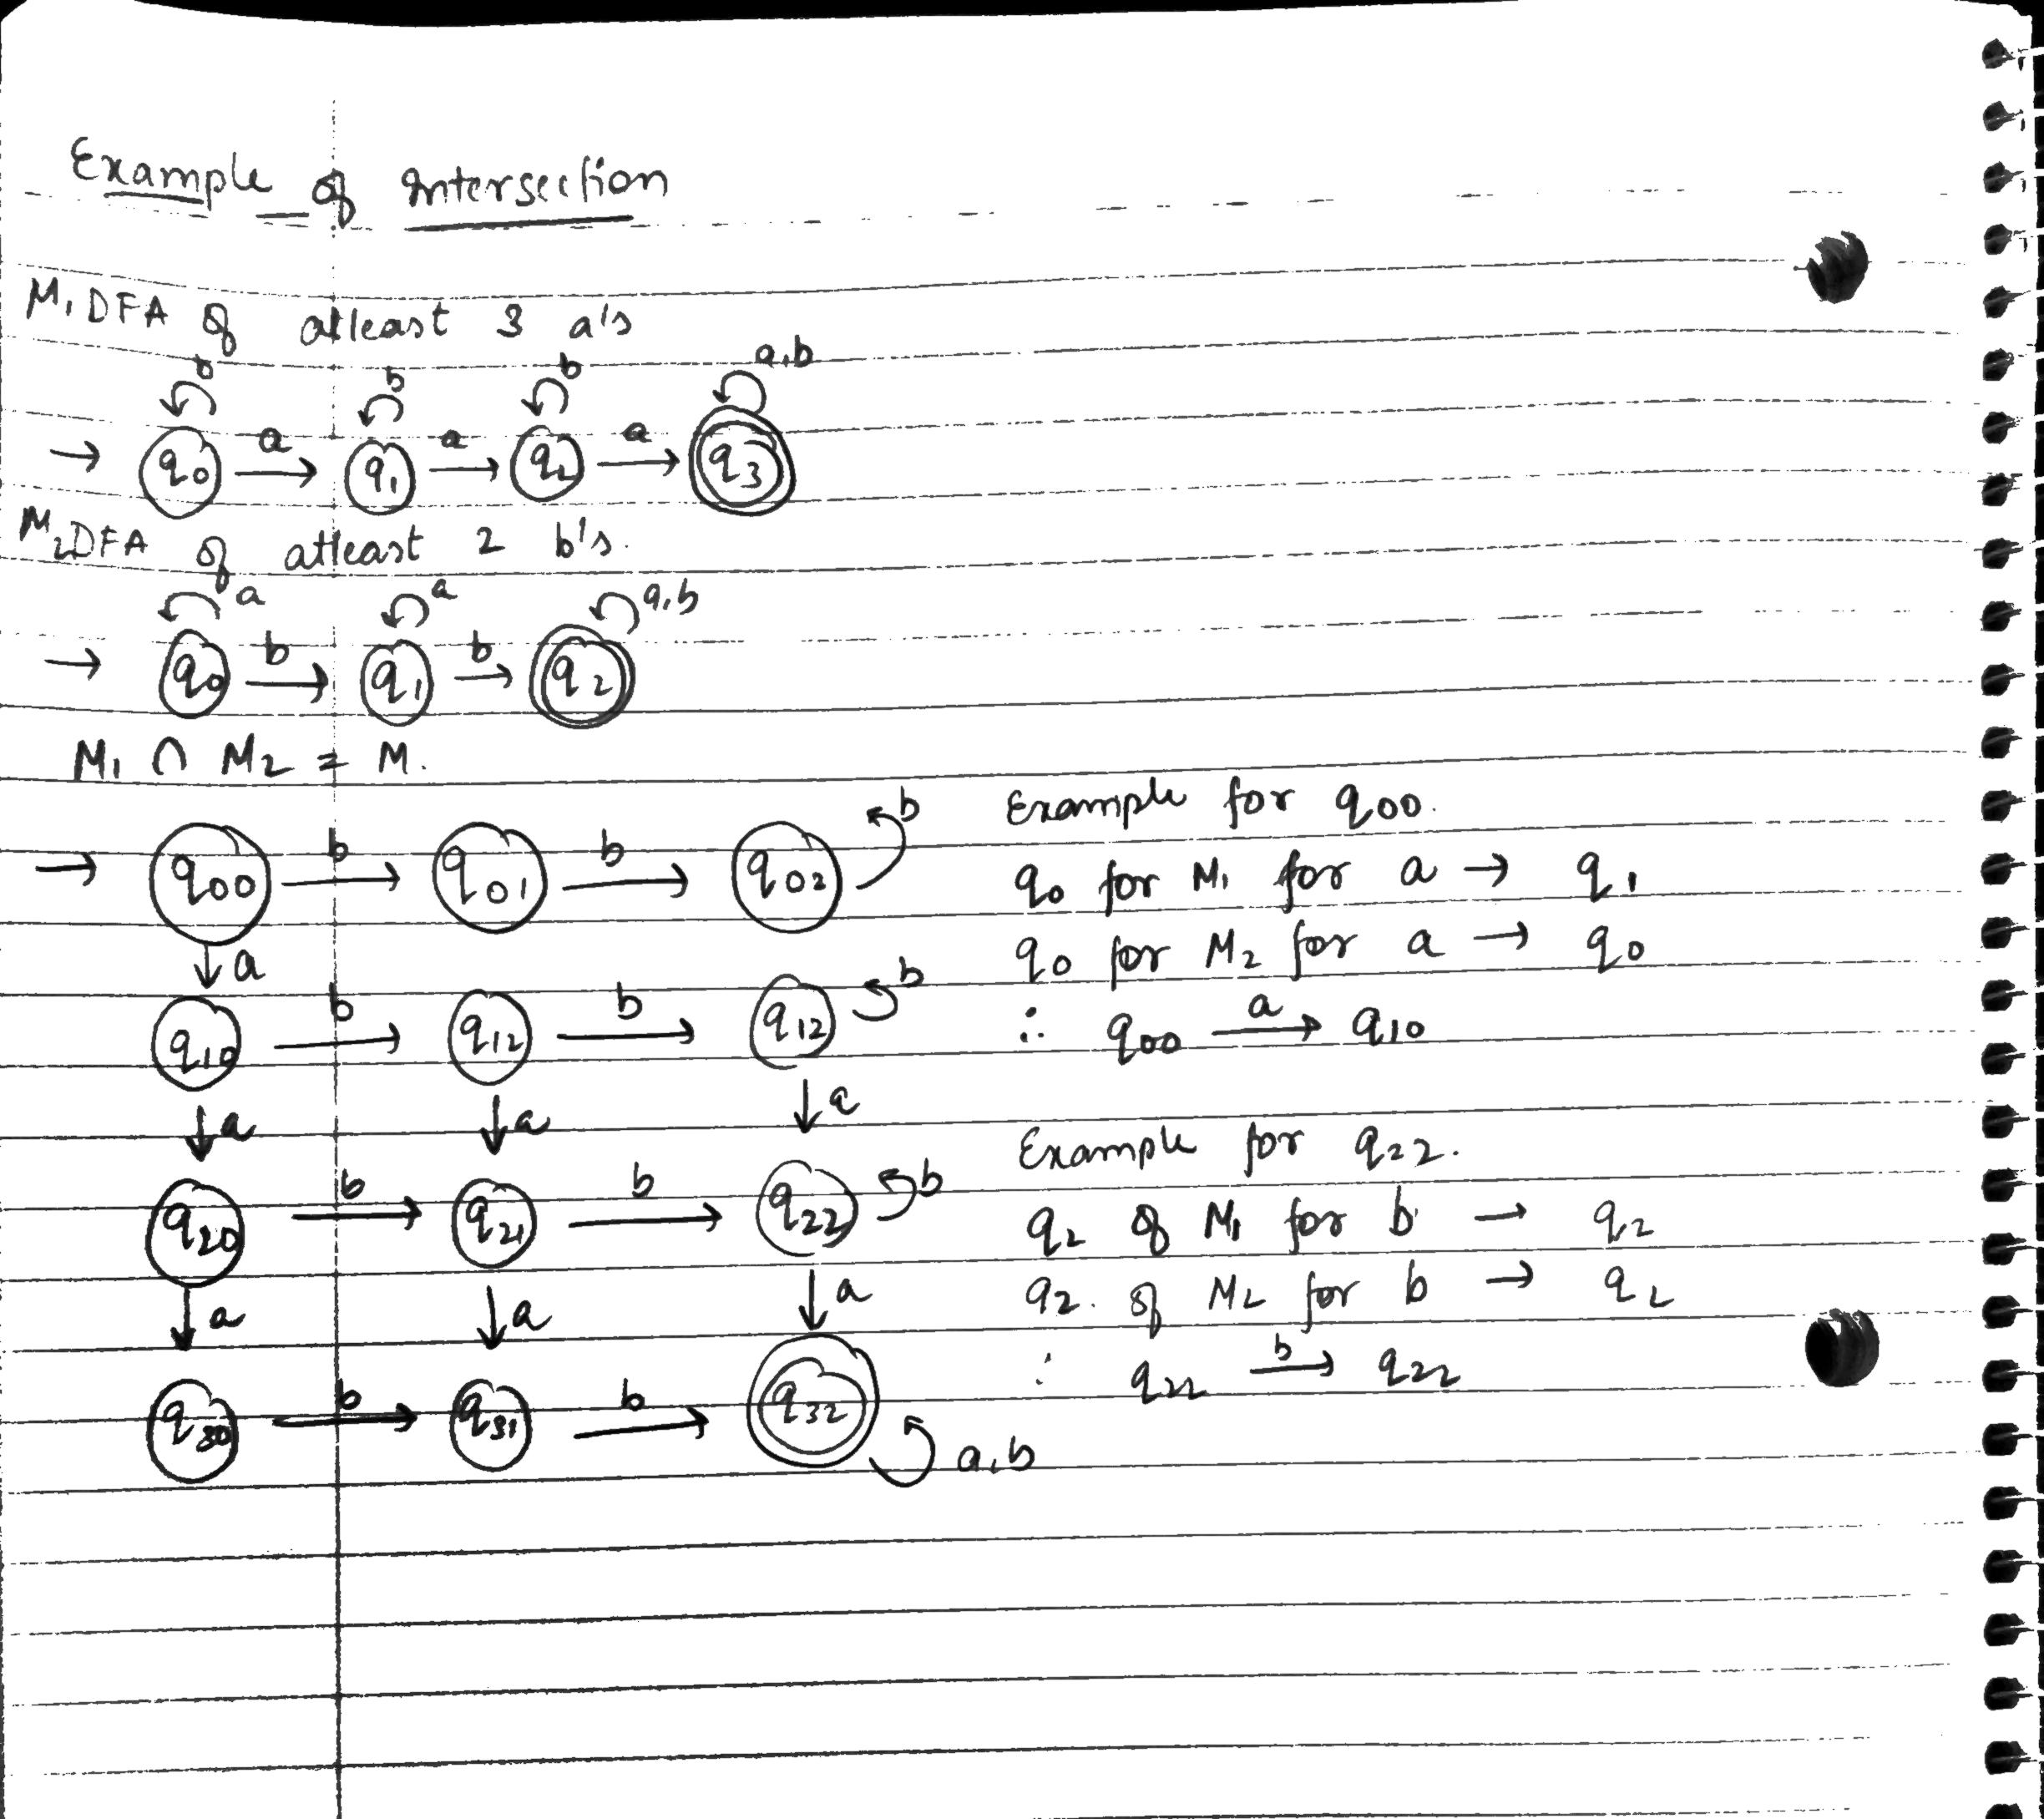 Example of Intersection
M1 DFA of atleast 3 a's
b b b a,b
→ q0 a→ q1 a→ q2 a→ q3
M2 DFA of atleast 2 b's.
a a a,b
→ q0 b→ q1 b→ q2
M1 ∩ M2 = M.
→ q00 b→ q01 b→ q02 b
↓a
q10 b→ q12 b→ q12 b
↓a ↓a ↓a
q20 b→ q21 b→ q22 b
↓a ↓a ↓a
q30 b→ q31 b→ q32 a,b
Example for q00.
q0 for M1 for a → q1
q0 for M2 for a → q0
∴ q00 a→ q10
Example for q22.
q2 of M1 for b → q2
q2. of M2 for b → q2
∴ q22 b→ q22